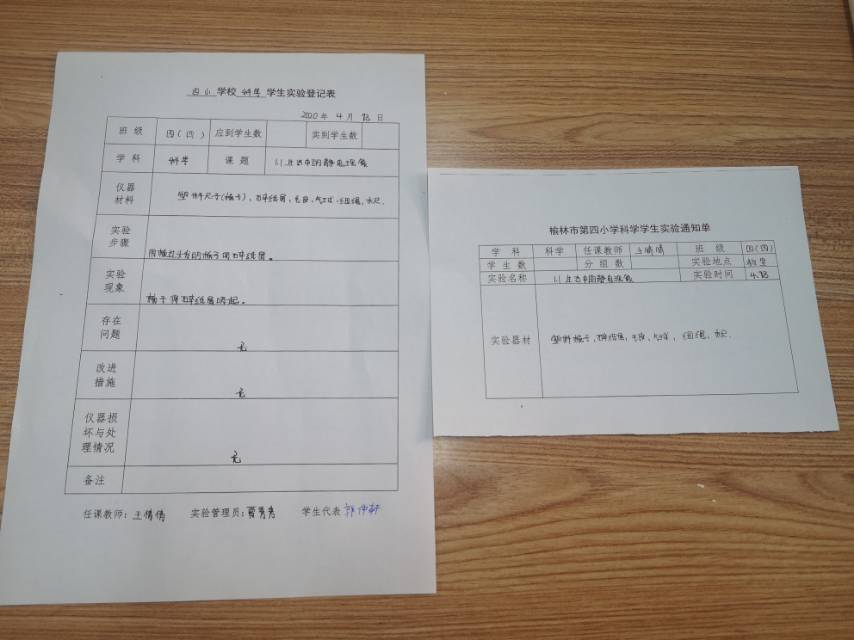 四小 学校 科学 学生实验登记表
2020 年 4 月 日
班 级 四(四) 应到学生数 实到学生数
学 科 科学 课 题 1.1 生活中的静电现象
仪器 材料 塑料尺子(梳子)、碎纸屑、毛皮、气球、细绳、
实验 步骤 用梳过头发的梳子 碎纸屑。
实验 现象 梳子将碎纸屑吸起。
存在 问题 无
改进 措施 无
仪器损 坏与处 理情况 无
备注
任课教师: 王倩倩 实验管理员: 学生代表
榆林市第四小学科学学生实验通知单
学 科 科学 任课教师 王倩倩 班 级 四(四)
学 生 数 分 组 数 实验地点 科学
实验名称 1.1 生活中的静电现象 实验时间
实验器材 塑料梳子、碎纸屑、毛皮、气球、细绳、